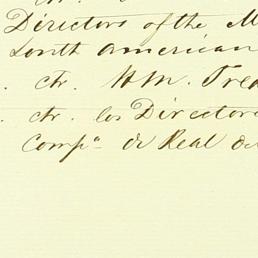 Directors of the M
South American
. ctr. H.M. Trea
. ctr. los Directore
Compª de Real de